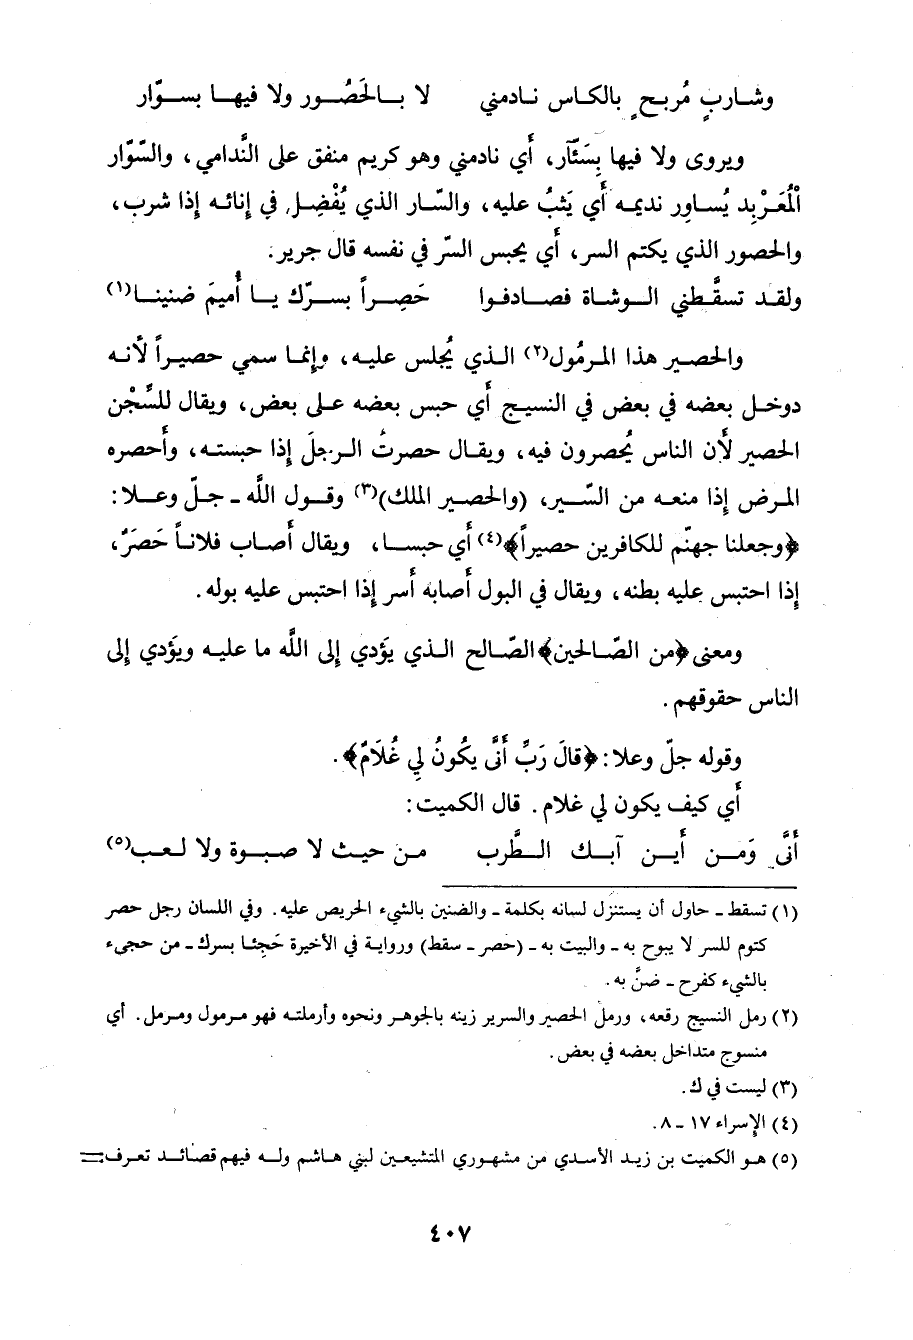 وشاربٍ مُربحٍ بالكاس نادمني لا بالحَصُور ولا فيها بسوّار
ويروى ولا فيها بِسَئّآر، أي نادمني وهو كريم منفق على النَّدامي، والسّوّار
الْمُعَرْبِد يُساوِر نديمه أي يَثبُ عليه، والسّار الذي يُفْضِل في إنائه إذا شرب،
والحصور الذي يكتم السر، أي يحبس السرّ في نفسه قال جرير.
ولقد تسقَّطني الوشاة فصادفوا حَصِراً بسرّك يا أُميمَ ضنينا(١)
والحصير هذا المرمُول(٢) الذي يُجلس عليه، وإنما سمي حصيراً لأنه
دوخل بعضه في بعض في النسيج أي حبس بعضه على بعض، ويقال للسَّجْن
الحصير لأن الناس يُحصرون فيه، ويقال حصرتُ الرجلَ إذا حبسته، وأحصره
المرض إذا منعه من السَّير، (والحصير الملك)(٣) وقول الله ـ جلّ وعلا:
﴿وجعلنا جهنّم للكافرين حصيراً﴾(٤) أي حبسا، ويقال أصاب فلاناً حَصَرٌ،
إذا احتبس عليه بطنه، ويقال في البول أصابه أسر إذا احتبس عليه بوله.
ومعنى ﴿من الصّالحين﴾ الصّالح الذي يَؤدي إلى الله ما عليه ويؤدي إلى
الناس حقوقهم.
وقوله جلّ وعلا: ﴿قالَ رَبِّ أنَّى يكُونُ لِي غُلَامٌ﴾.
أي كيف يكون لي غلام. قال الكميت:
أنَّى وَمن أين آبك الطَّرب من حيث لا صبوة ولا لعب(٥)
(١) تسقط ـ حاول أن يستنزل لسانه بكلمة ـ والضنين بالشيء الحريص عليه. وفي اللسان رجل حصر
كتوم للسر لا يبوح به ـ والبيت به ـ (حصر ـ سقط) ورواية في الأخيرة حَجِئا بسرك ـ من حجىء
بالشيء كفرح ـ ضنَّ به.
(٢) رمل النسيج رقعه، ورملَ الحصير والسرير زينه بالجوهر ونحوه وأرملته فهو مرمول ومرمل. أي
منسوج متداخل بعضه في بعض.
(٣) ليست في ك.
(٤) الإسراء ١٧ ـ ٨.
(٥) هو الكميت بن زيد الأسدي من مشهوري المتشيعين لبني هاشم وله فيهم قصائد تعرف=
٤٠٧